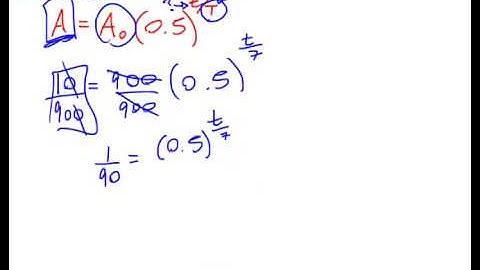 A = A₀(0.5)^(t/T)
10/900 = 900/900 (0.5)^(t/7)
1/90 = (0.5)^(t/7)